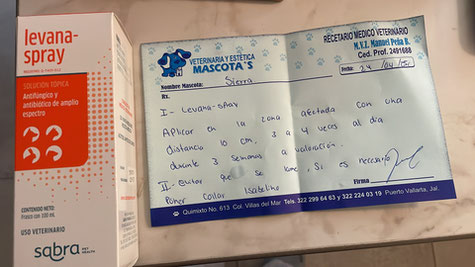 levana-
spray
SOLUCIÓN TÓPICA
Antifúngico y
antibiótico de amplio
espectro
CONTENIDO NETO:
Frasco con 100 mL
USO VETERINARIO
sabra
PET
HEALTH
VETERINARIA Y ESTÉTICA
MASCOTA´S
RECETARIO MEDICO VETERINARIO
M.V.Z. Manuel Peña R.
Ced. Prof. 2491688
Fecha: 24 /04/
Nombre Mascota: Sierra
Rx.
I- Levana-spray
Aplicar en la zona afectada con una
distancia 10 cm, 3 a 4 veces al día
durante 3 semanas a valoración.
II- Evitar que se lame, si es necesario
Poner collar Isabelino
Firma
Quimixto No. 613 Col. Villas del Mar Tels. 322 299 64 63 y 322 224 03 19 Puerto Vallarta, Jal.